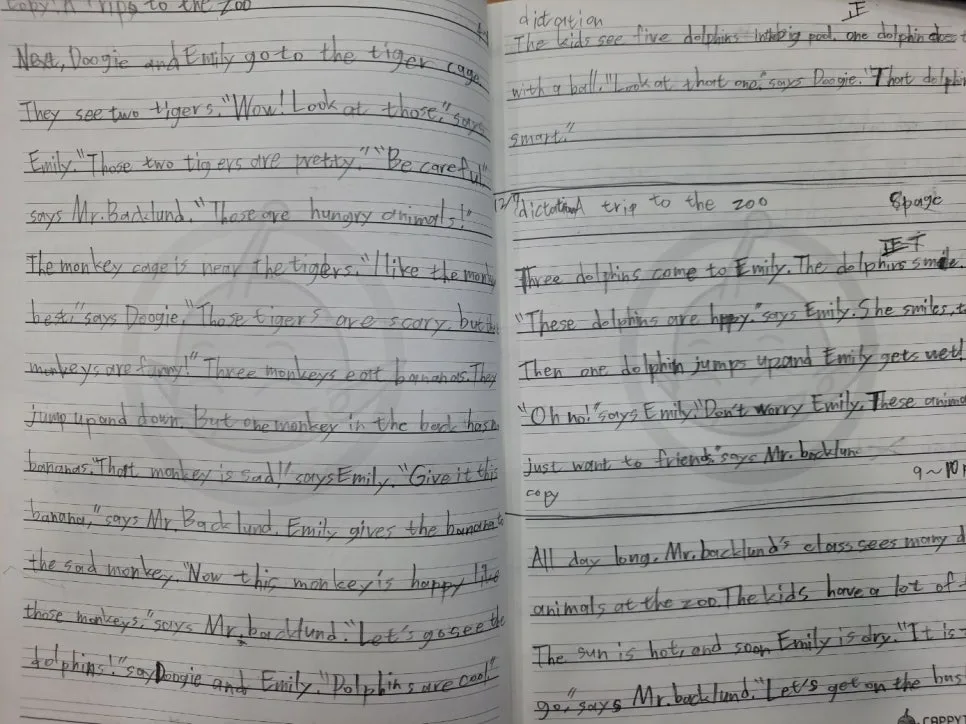 Copy: A Trip to the Zoo
Next, Doogie and Emily go to the tiger cage
They see two tigers. "Wow! Look at those," says
Emily. "Those two tigers are pretty." "Be careful"
says Mr. Backlund. "Those are hungry animals!"
The monkey cage is near the tigers. "I like the monkey
best," says Doogie. "Those tigers are scary, but the
monkeys are funny!" Three monkeys eat bananas. They
jump up and down. But one monkey in the back has no
bananas. "That monkey is sad!" says Emily. "Give it this
banana," says Mr. Backlund. Emily gives the banana to
the sad monkey. "Now this monkey is happy like
those monkeys," says Mr. backlund. "Let's go see the
dolphins!" say Doogie and Emily. "Dolphins are cool."
dictation
正
The kids see five dolphins in the big pool. one dolphin does
with a ball. "Look at that one," says Doogie. "That dolphin
smart."
12/7 dictation A trip to the zoo 8page
正
Three dolphins come to Emily. The dolphins smile.
"These dolphins are happy," says Emily. She smiles, to
Then one dolphin jumps up and Emily gets wet!
"Oh no!" says Emily. "Don't worry Emily. These anima
just want to friends" says Mr. backlund
9~10
copy
All day long, Mr. backlund's class sees many d
animals at the zoo. The kids have a lot of
The sun is hot, and soon Emily is dry. "It is
go," says Mr. backlund. "Let's get on the bus
CAPPYT